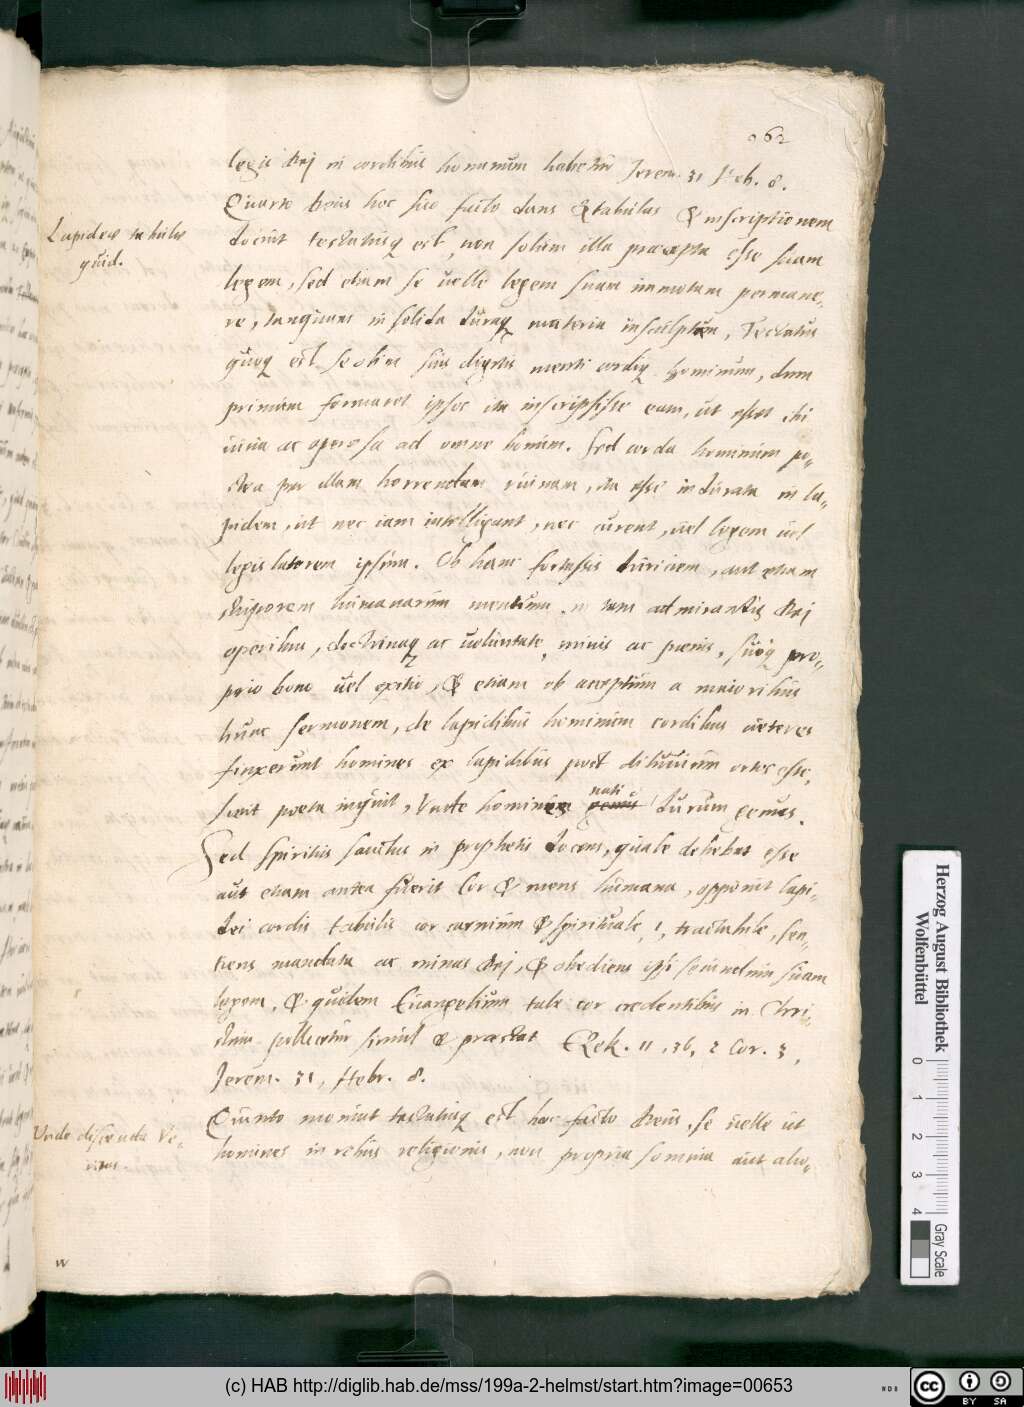 062
legis Dei in cordibus hominum habetur Jerem. 31 Heb. 8.
Lapideae tabulae
quid.
Quarto Deus hoc suo facto dans tabulas & inscriptionem
docuit testatusq est, non solum illa praecepta esse suam
legem, sed etiam se uelle legem suam immotam permane-
re, tanquam in solida duraq materia insculptam, Testatus
quoq est se olim suis digitis menti cordiq hominum, dum
primum formaret ipsos ita inscripsisse eam, ut esset
ac operosa ad omne bonum. Sed corda hominum po-
stea per illam horrendam ruinam, ita esse indurata in la-
pidem, ut nec iam intelligant, nec curent, uel legem uel
legis latorem ipsum. Ob hanc fortassis duriciem, aut etiam
stuporem humanarum mentium, in tam admirandis Dei
operibus, doctrinaq ac uoluntate, minis ac poenis, suoq pro-
prio bono uel exitio, & etiam ob acceptum a maioribus
hunc sermonem, de lapidibus hominum cordibus ueteres
finxerunt homines ex lapidibus post diluuium ortos esse,
sicut poeta inquit, Unde homines nati genus durum genus.
Sed spiritus sanctus in prophetis docens, quale debebat esse
aut etiam antea fuerit Cor & mens humana, opponit lapi-
dei cordis tabulis cor carnium & spirituale, i, tractabile, sen-
tiens mandata ac minas Dei, & obediens ipsi secundum suam
legem, & quidem Euangelium tale cor credentibus in Chri-
stum pollicetur simul & praestat Ezek. 11, 36, 2 Cor. 3,
Jerem. 31, Hebr. 8.
Unde discenda Ve-
ritas.
Quinto monuit testatusq est hoc facto Deus, se uelle ut
homines in rebus religionis, non propria somnia aut aliu-
Herzog August Bibliothek
Wolfenbüttel
0 1 2 3 4
Gray Scale
(c) HAB http://diglib.hab.de/mss/199a-2-helmst/start.htm?image=00653
cc BY SA